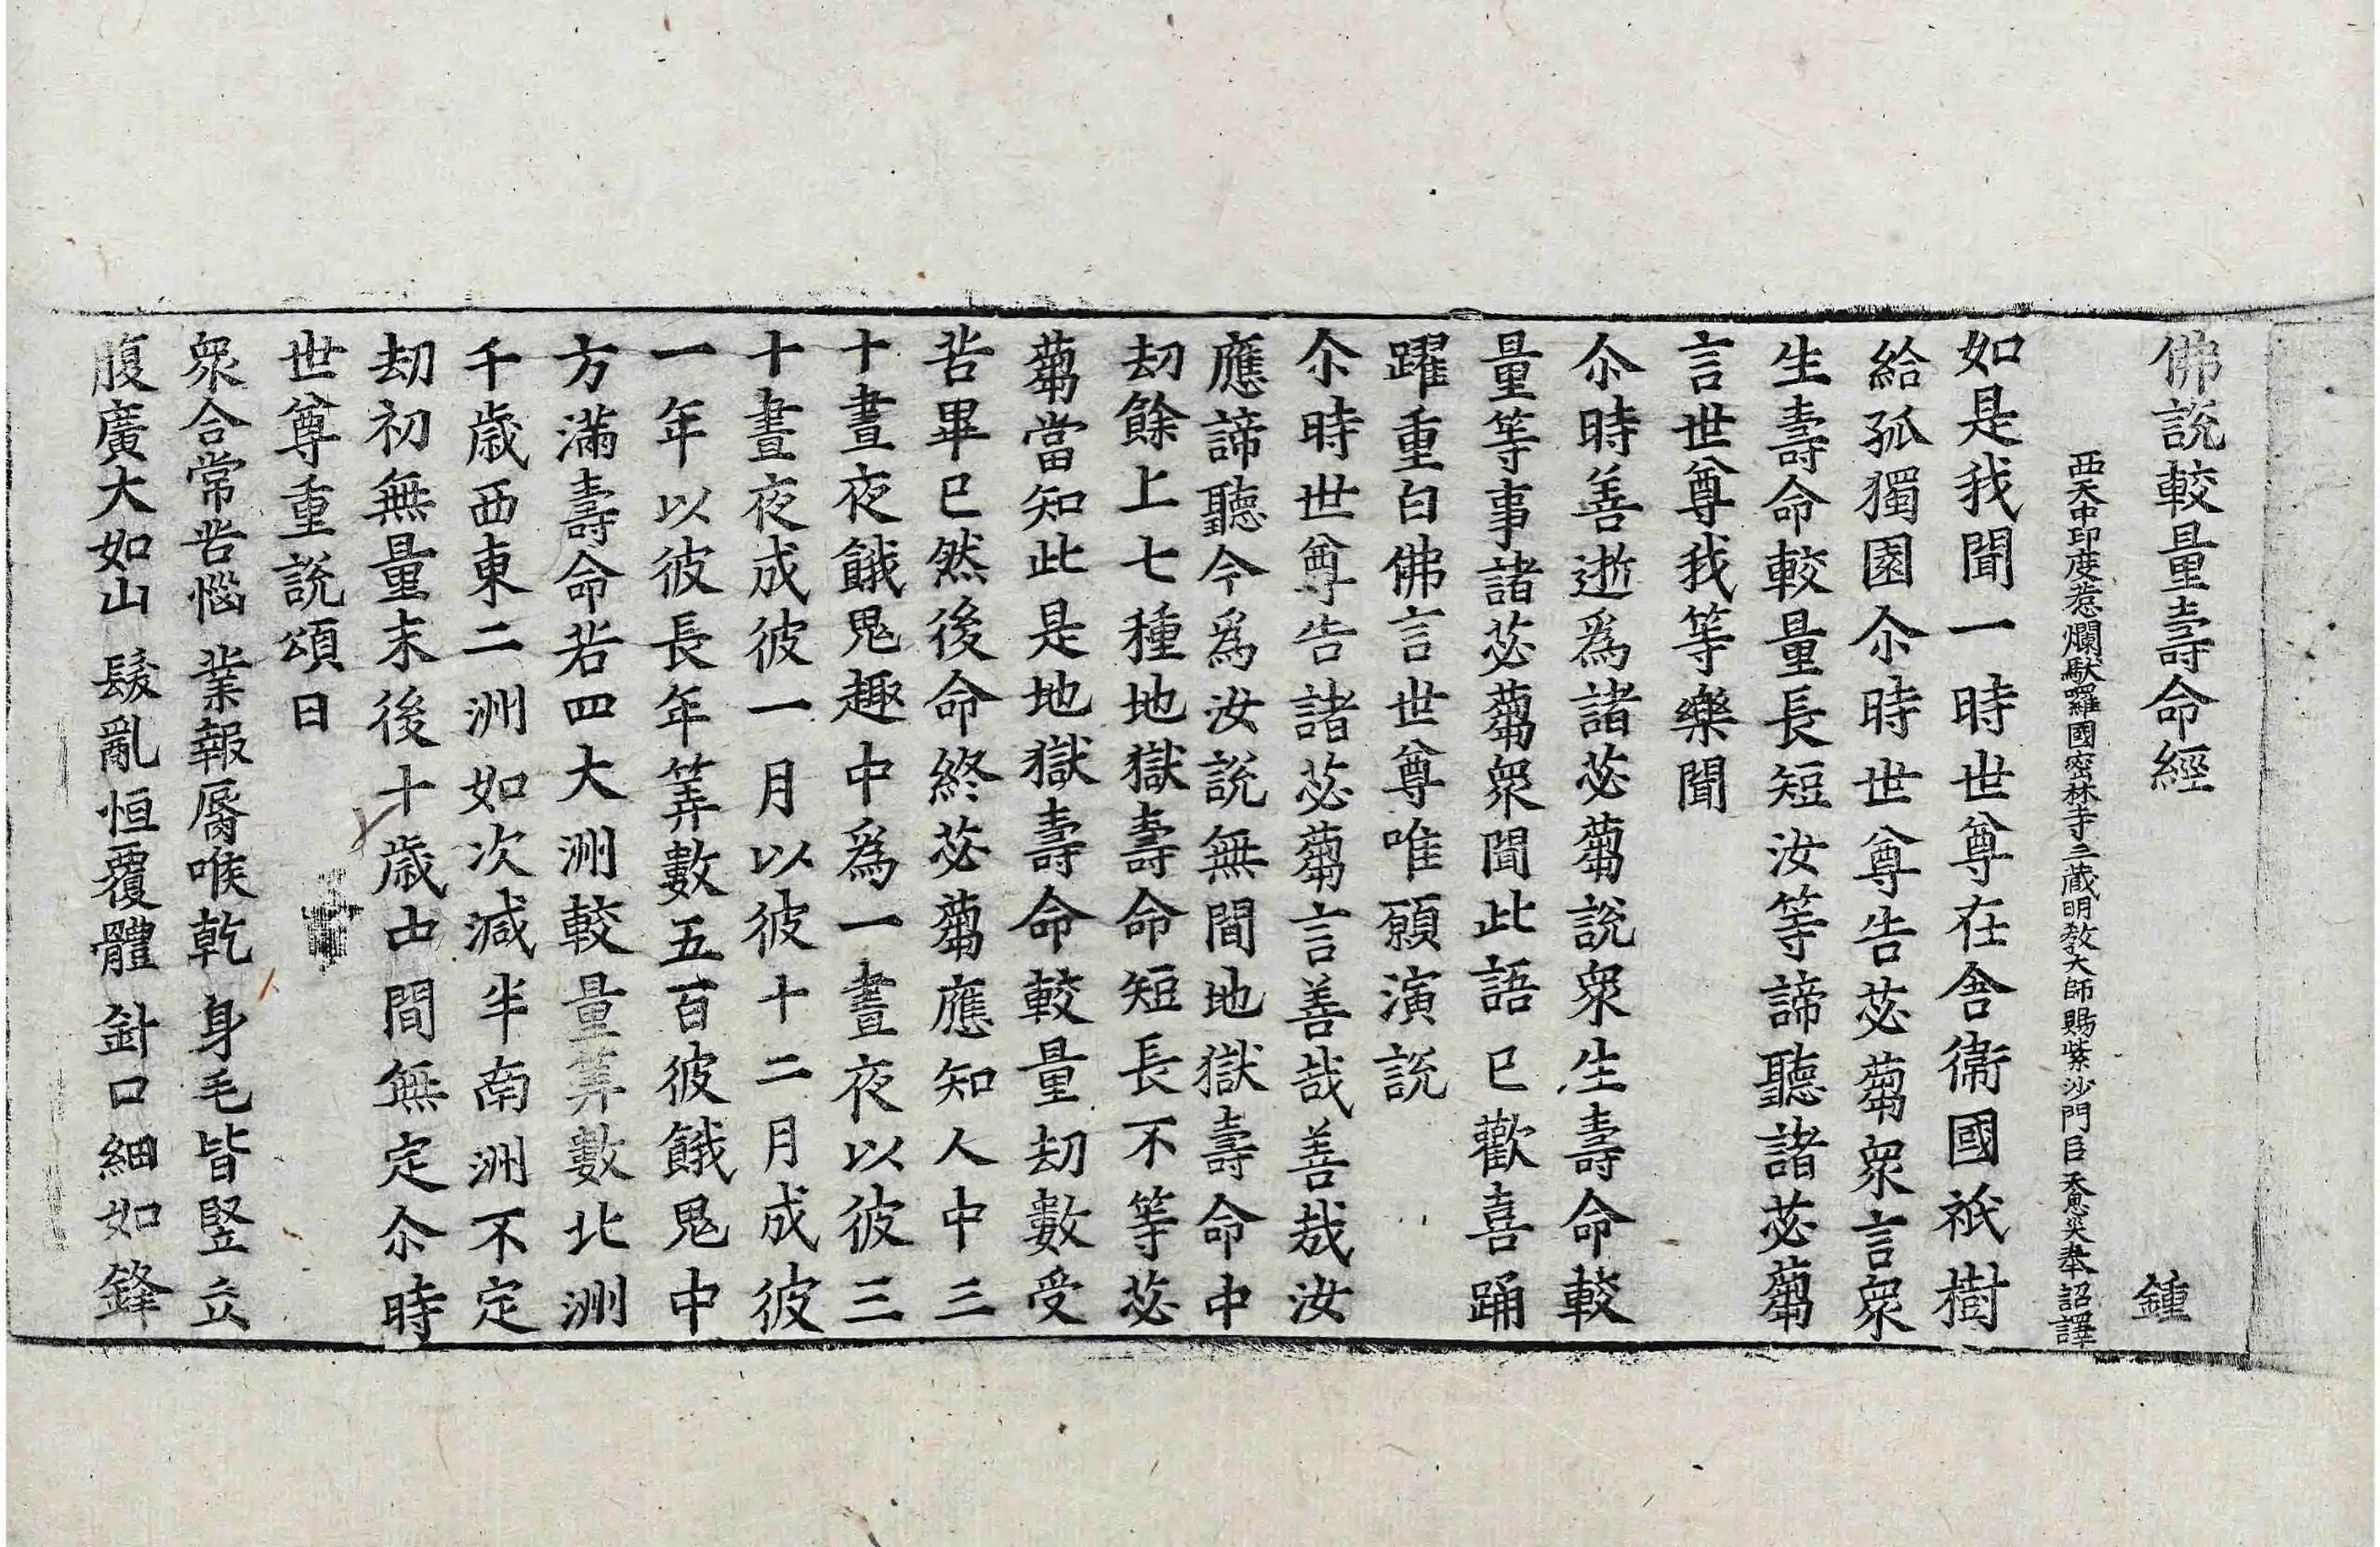 佛說較量壽命經 鍾
西天中印度惹爛馱囉國密林寺三藏明教大師賜紫沙門臣天息災奉詔譯
如是我聞一時世尊在舍衞國祇樹
給孤獨園尒時世尊告苾蒭衆言衆
生壽命較量長短汝等諦聽諸苾蒭
言世尊我等樂聞
尒時善逝爲諸苾蒭說衆生壽命較
量等事諸苾蒭衆聞此語已歡喜踊
躍重白佛言世尊唯願演說
尒時世尊告諸苾蒭言善哉善哉汝
應諦聽今爲汝說無間地獄壽命中
劫餘上七種地獄壽命短長不等苾
蒭當知此是地獄壽命較量劫數受
苦畢已然後命終苾蒭應知人中三
十晝夜餓鬼趣中爲一晝夜以彼三
十晝夜成彼一月以彼十二月成彼
一年以彼長年筭數五百彼餓鬼中
方滿壽命若四大洲較量筭數北洲
千歲西東二洲如次減半南洲不定
劫初無量末後十歲中間無定尒時
世尊重說頌曰
衆合常苦惱 業報脣喉乾 身毛皆竪立
腹廣大如山 髮亂恒覆體 針口細如鋒